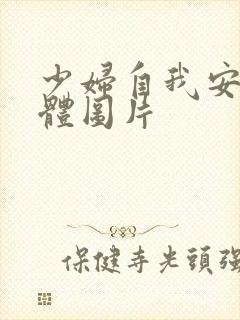 少婦自我安
體圖片
保健寺光頭強